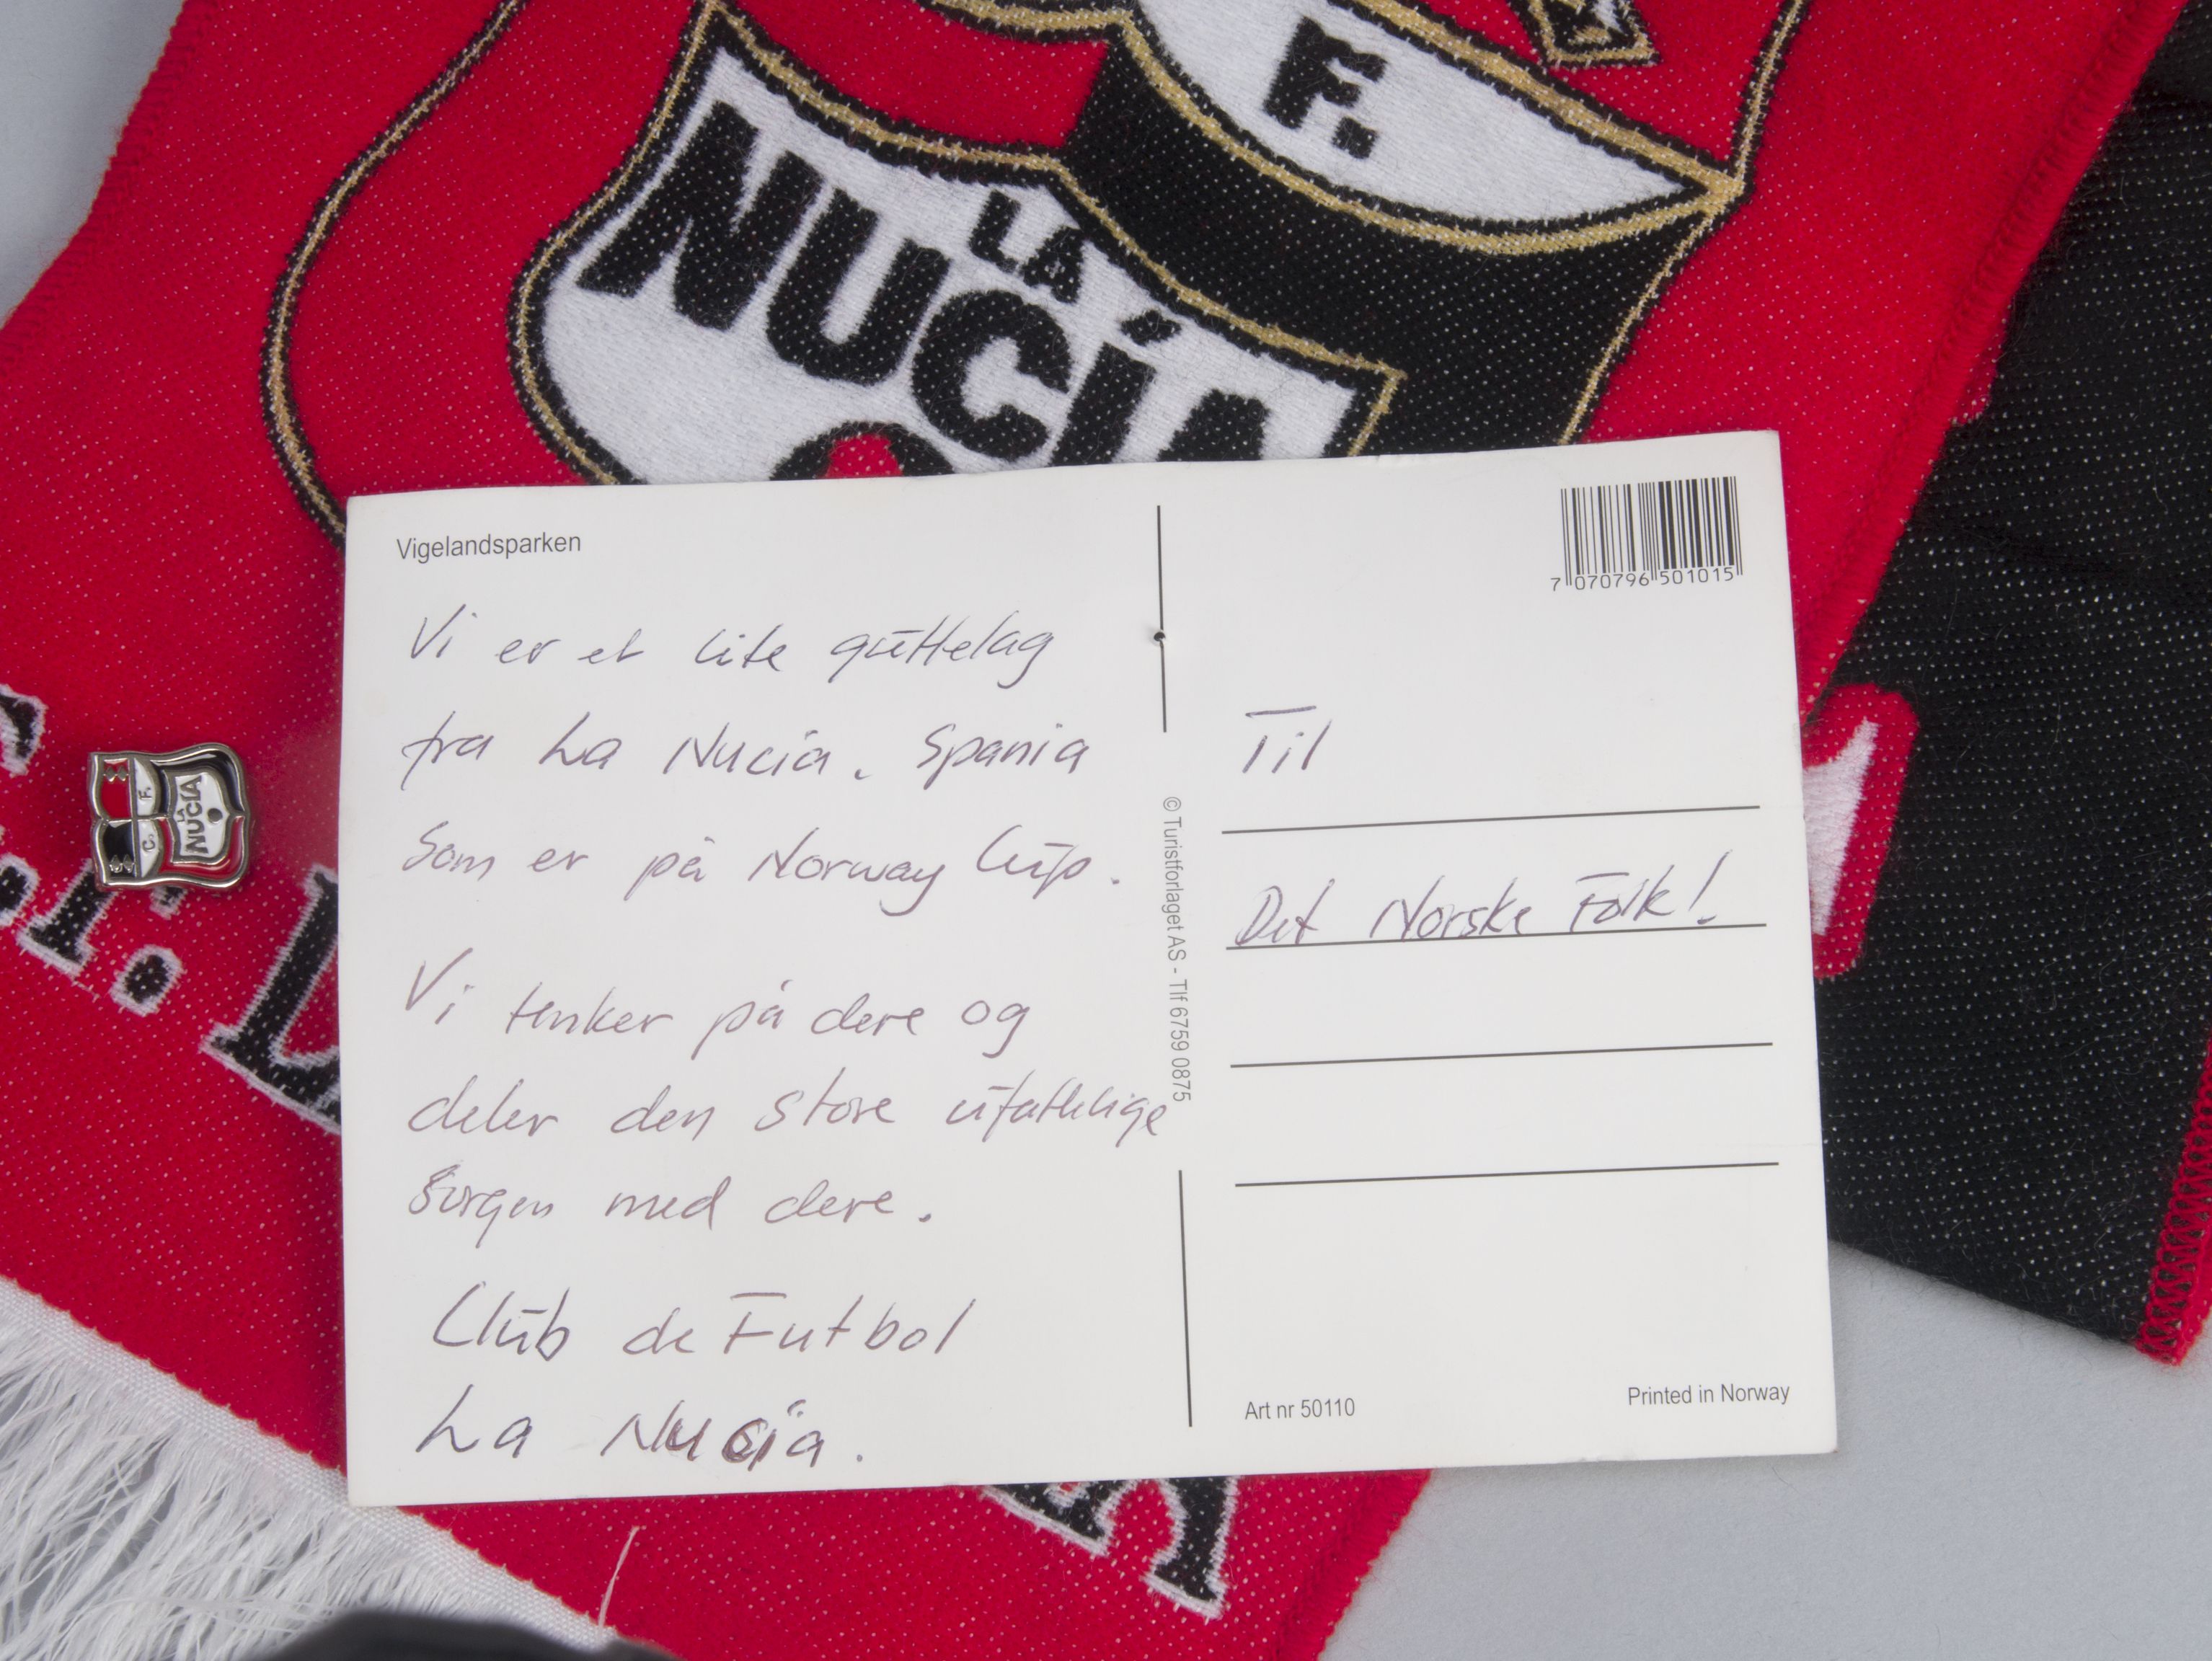 F.
LA
NUCÍA
Vigelandsparken
7 070796 501015
Vi er et lite guttelag
fra La Nucia. Spania
Som er på Norway Cup.
Vi tenker på dere og
deler den store ufattelige
Sorgen med dere.
Club de Futbol
La Nucía.
© Turistforlaget AS - Tlf 6759 0875
Til
Det Norske Folk!
Art nr 50110
Printed in Norway
C. F.
LA
NUCIA